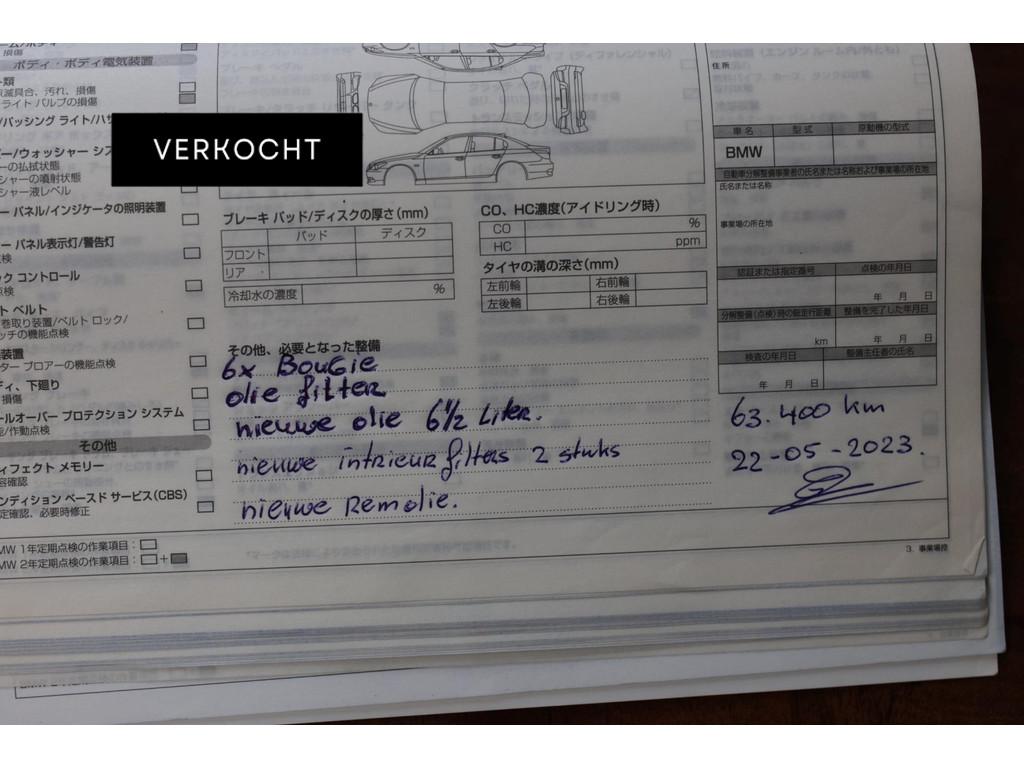 ボディ・ボディ電気装置
損傷
VERKOCHT
ライト バルブの損傷
ーの払拭状態
シャーの噴射状態
シャー液レベル
ー パネル/インジケータの照明装置
ー パネル表示灯/警告灯
点検
ック コントロール
点検
ト ベルト
巻取り装置/ベルト ロック/
ッチの機能点検
装置
ター ブロアーの機能点検
ディ、下廻り
損傷
ールオーバー プロテクション システム
能/作動点検
その他
ィフェクト メモリー
容確認
ンディション ベースド サービス(CBS)
定確認、必要時修正
MW 1年定期点検の作業項目：
MW 2年定期点検の作業項目： +
ブレーキ パッド/ディスクの厚さ(mm)
パッド ディスク
フロント
リア
冷却水の濃度 %
CO、HC濃度(アイドリング時)
CO %
HC ppm
タイヤの溝の深さ(mm)
左前輪 右前輪
左後輪 右後輪
その他、必要となった整備
6x BOUGIE
olie filter
nieuwe olie 6½ Liter.
nieuwe intrieur filters 2 stuks
nieuwe Remolie.
住所
車名 型式 原動機の型式
BMW
自動車分解整備事業者の氏名または名称および事業場の所在地
氏名または名称
事業場の所在地
認証または指定番号 点検の年月日
年 月 日
分解整備(点検)時の総走行距離 整備を完了した年月日
km 年 月 日
検査の年月日 整備主任者の氏名
年 月 日
63.400 km
22-05-2023.
3. 事業場控